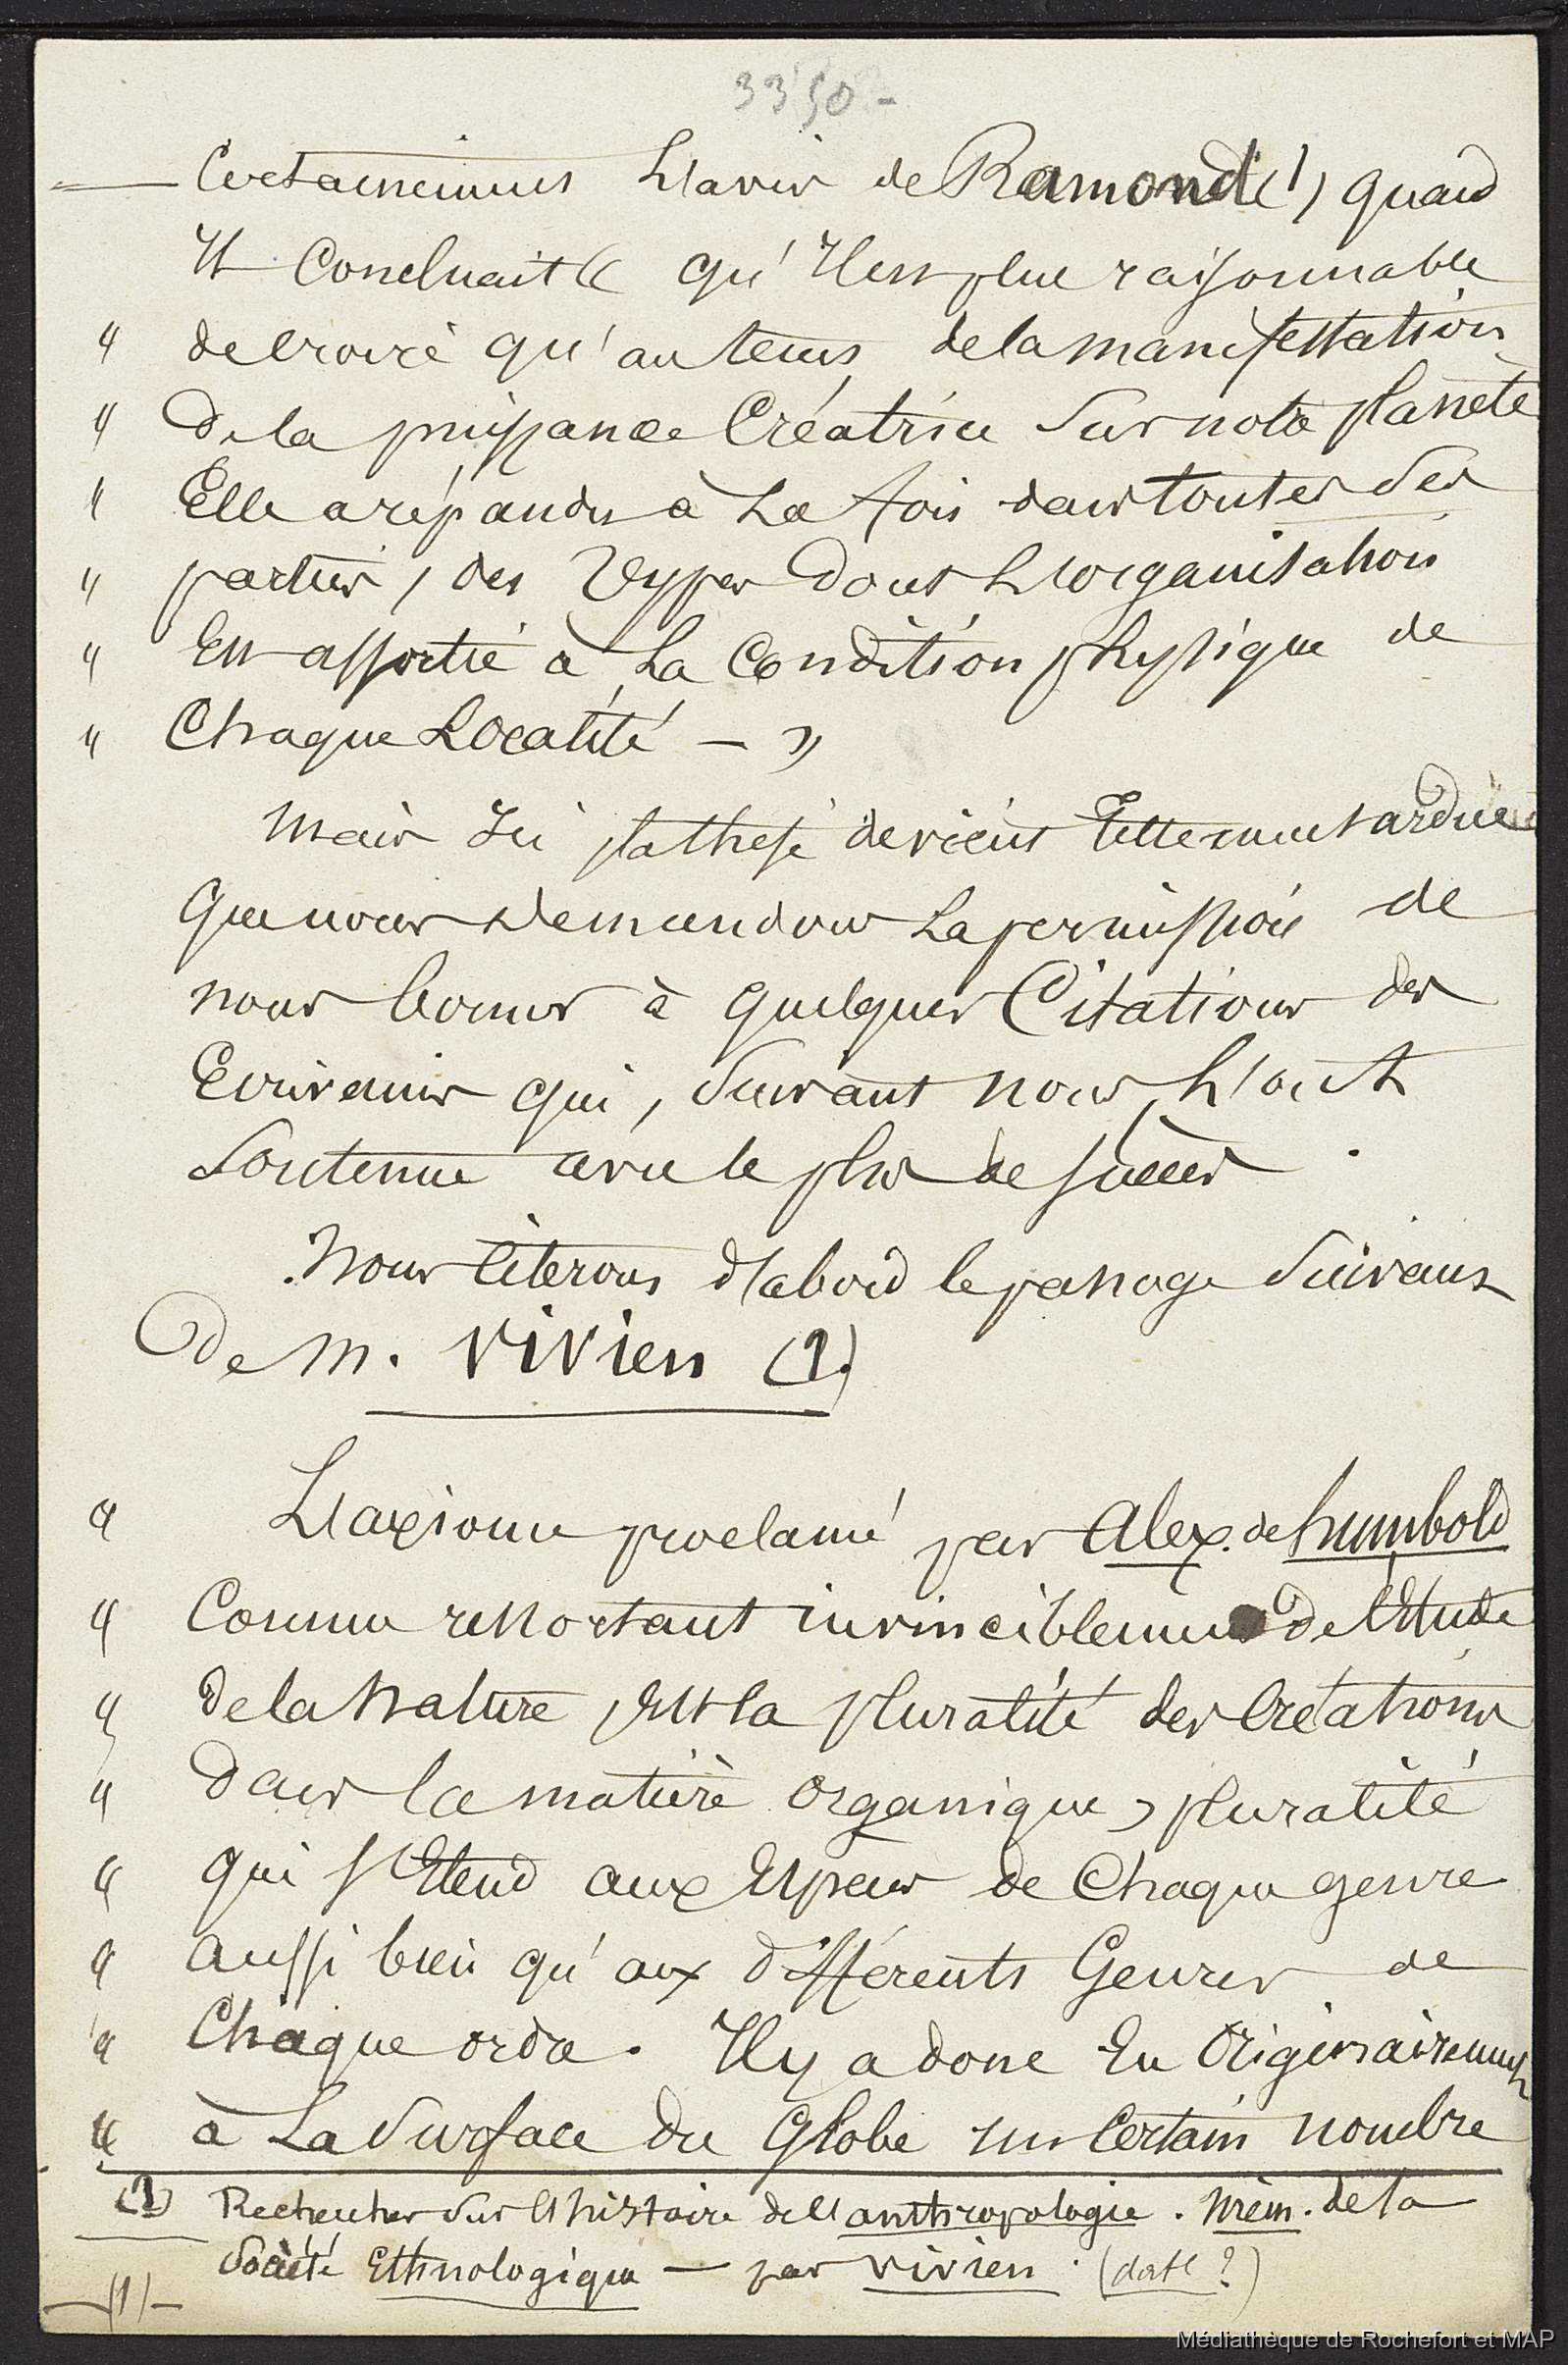 3350 -
Certainement L'avis de Ramond (1) quand
Il Concluait « qu'Il est plus raisonnable
" de croire qu'au tems de la manifestation
" De la puissance Créatrice Sur notre planète
" Elle a répandu à La fois dans toutes Ses
" parties, des Types Dont L'organisation
" Est assortie à La Condition physique de
" Chaque Localité — »
Mais Ici la thèse devient tellement ardue
Que nous Demandons La permission de
nous borner à quelques Citations des
Ecrivains qui, Suivant nous, L'ont
Soutenue avec le plus de succès .
Nous citerons d'abord le passage Suivant
De M. Vivien (1.)
" L'axiome proclamé par Alex. de humbold
" Comme ressortant invinciblement de l'Etude
" de la Nature, Est la pluralité des Créations
" Dans la matière organique, pluralité
" qui s'Etend aux Espèces de Chaque genre
" aussi bien qu'aux différents Genres de
" Chaque ordre. Il y a donc Eu Originairement
" à La Surface du Globe un Certain nombre
(1) Recherches Sur l'histoire de l'anthropologie. Mém. de la
Société Ethnologique — par Vivien . (date ?)
(1)
Médiathèque de Rochefort et MAP